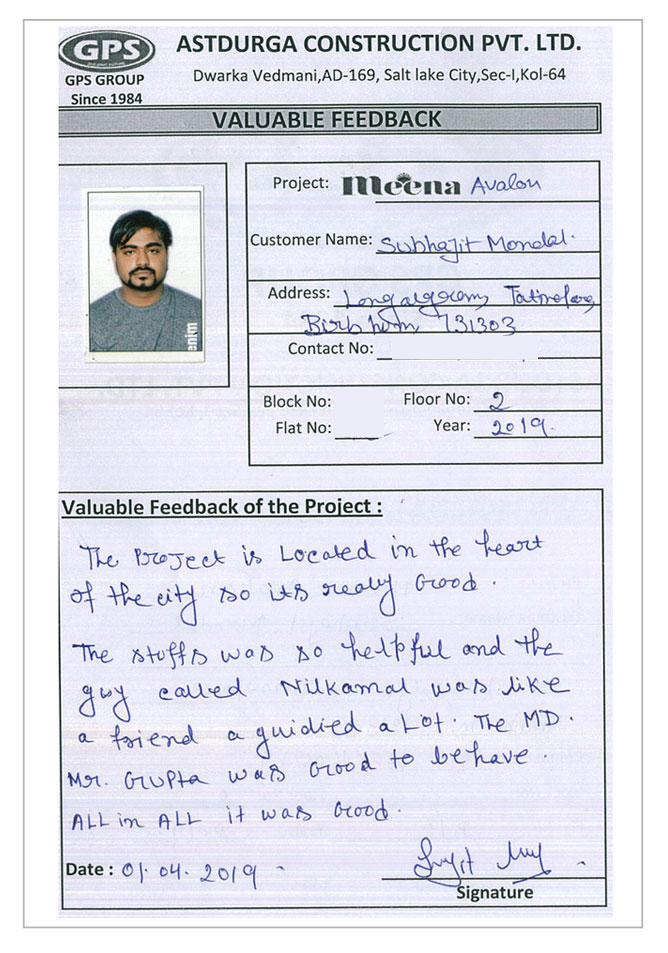 GPS
GPS GROUP
Since 1984
ASTDURGA CONSTRUCTION PVT. LTD.
Dwarka Vedmani,AD-169, Salt lake City,Sec-I,Kol-64
VALUABLE FEEDBACK
Project: Meena Avalon
Customer Name: Subhajit Mondal.
Address:
Birbhum 731303
Contact No:
Block No: Floor No: 2
Flat No: Year: 2019.
Valuable Feedback of the Project :
The Project is Located in the heart
of the city so its really Good.
The stuffs was so helpful and the
guy called Nilkamal was like
a friend a guidied a Lot. The MD.
Mr. Gupta was Good to behave.
ALL in ALL it was Good.
Date : 01.04.2019
Signature